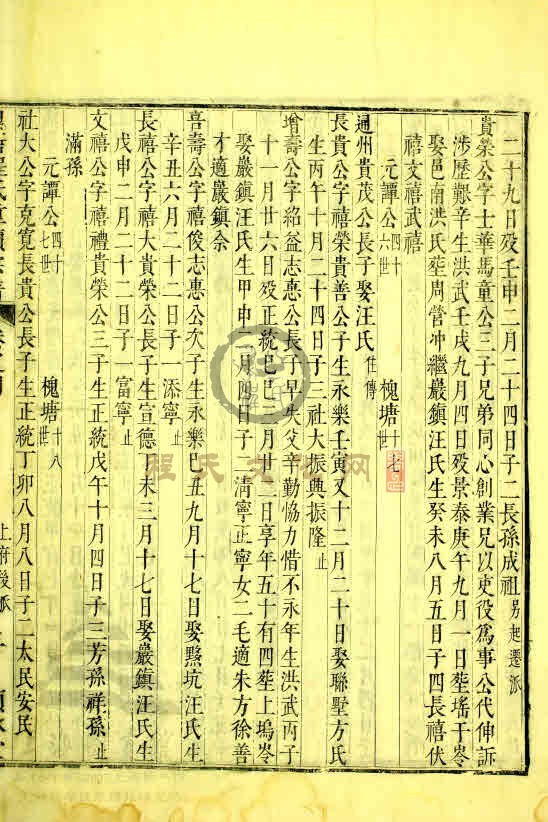 二十九日歿壬申二月二十四日子二長孫成祖另起遷派
貴榮公字士華馬童公三子兄弟同心創業兄以吏役爲事公代伸訴
涉歷艱辛生洪武壬戌九月四日歿景泰庚午九月一日塟瑤干岺
娶邑南洪氏塟周管冲繼巖鎮汪氏生癸未八月五日子四長禧伏
禧文禧武禧
元譚公四十六世 槐塘十七世
通州貴茂公長子娶汪氏住傳
長貴公字禧榮貴善公子生永樂壬寅又十二月二十日娶聯墅方氏
生丙午十月二十四日子三社大振興振隆止
增壽公字紹益志惪公長子早失父辛勤協力惜不永年生洪武丙子
十一月廿六日歿正統己巳三月廿三日享年五十有四塟上塢岺
娶巖鎮汪氏生甲申二月四日子二清寧正寧女二毛適朱方徐善
才適巖鎮余
喜壽公字禧俊志惪公次子生永樂己丑九月十七日娶黟坑汪氏生
辛丑六月二十二日子一添寧止
長禧公字禧大貴榮公長子生宣德丁未三月十七日娶巖鎮汪氏生
戊申二月二十二日子一富寧止
文禧公字禧禮貴榮公三子生正統戊午十月四日子三芳孫祥孫止
滿孫
元譚公四十七世 槐塘十八世
社大公字克寬長貴公長子生正統丁卯八月八日子二太民安民
程氏文化网